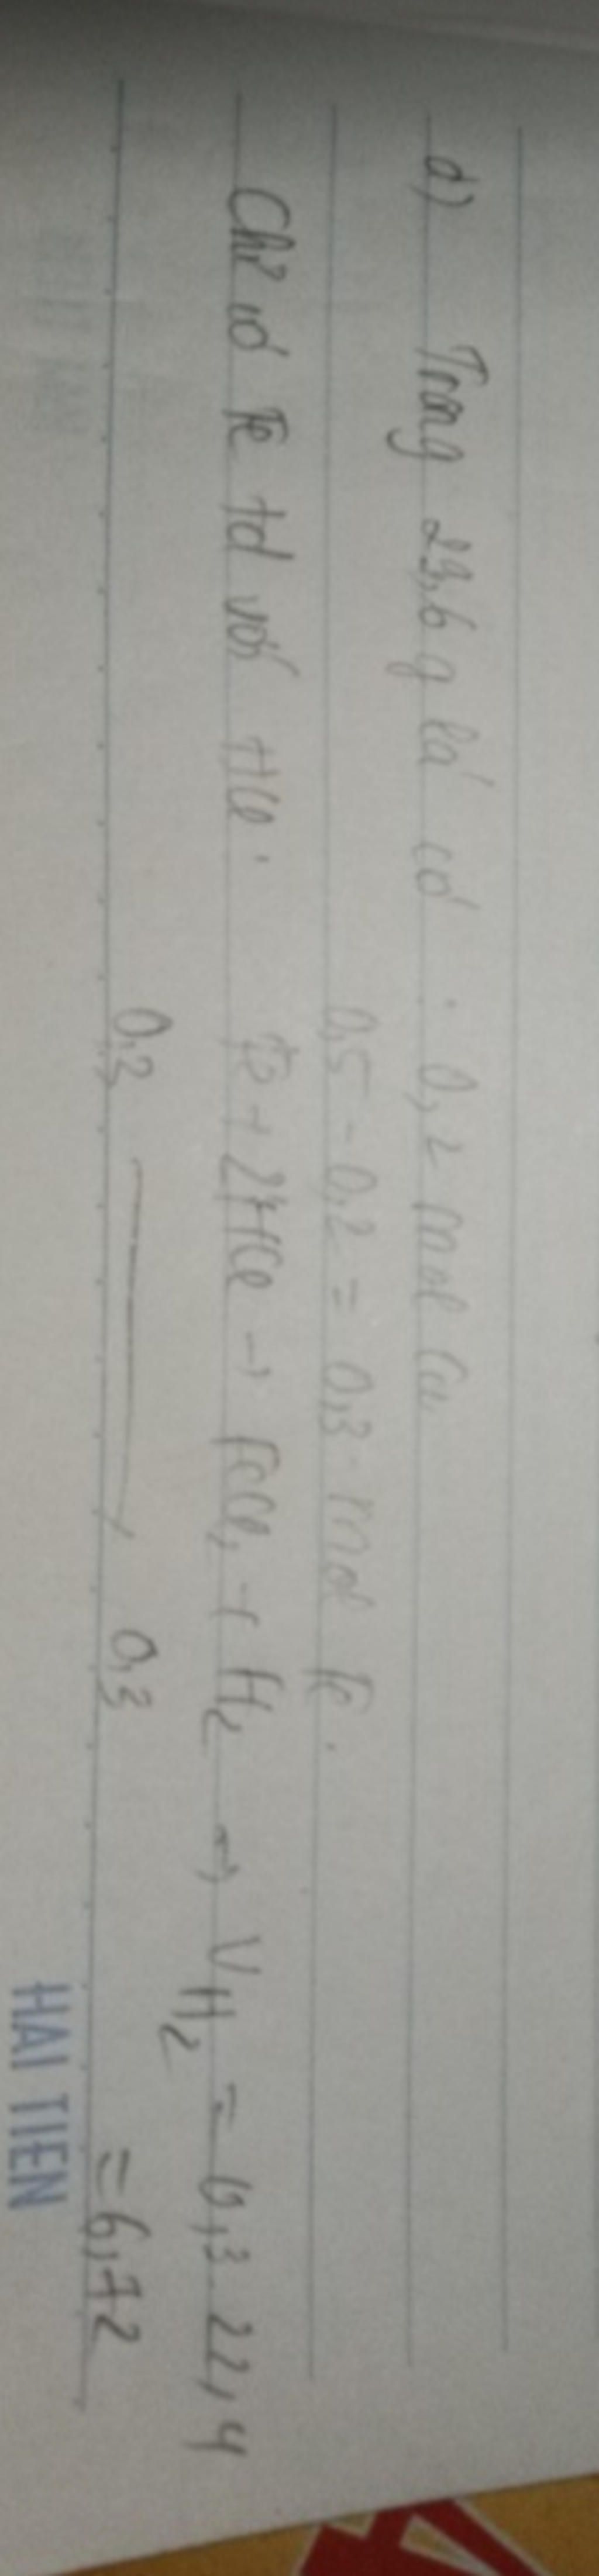 d) Trong 29,6 g lá có : 0,2 mol Cu
0,5 - 0,2 = 0,3 mol Fe.
Chỉ có Fe td với HCl. Fe + 2HCl → FeCl2 + H2 → VH2 = 0,3.22,4
0,3 0,3 = 6,72
HAI TIEN